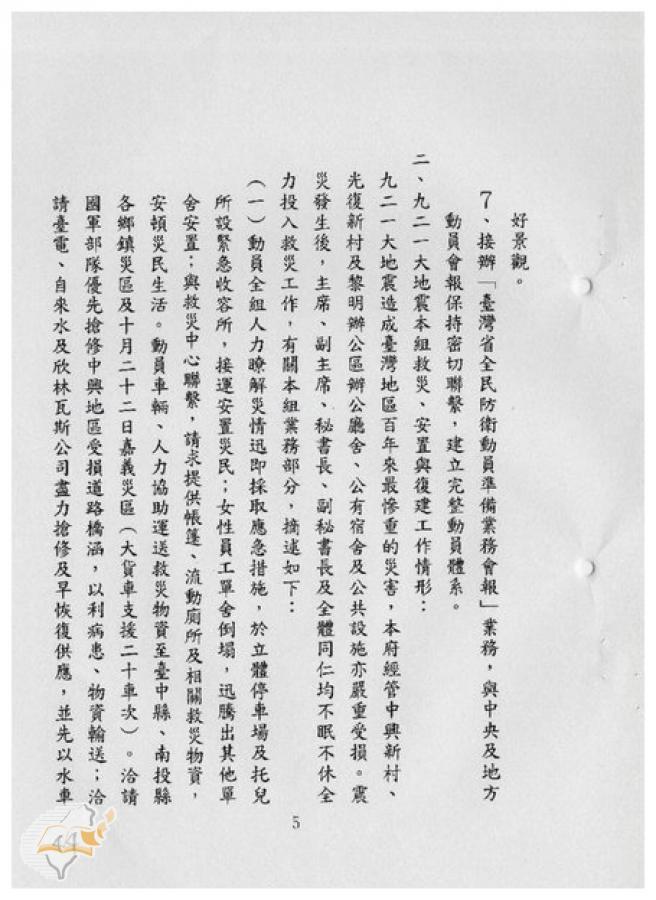 好景觀。
7、接辦「臺灣省全民防衛動員準備業務會報」業務，與中央及地方
動員會報保持密切聯繫，建立完整動員體系。
二、九二一大地震本組救災、安置與復建工作情形：
九二一大地震造成臺灣地區百年來最慘重的災害，本府經管中興新村、
光復新村及黎明辦公區辦公廳舍、公有宿舍及公共設施亦嚴重受損。震
災發生後，主席、副主席、秘書長、副秘書長及全體同仁均不眠不休全
力投入救災工作，有關本組業務部分，摘述如下：
（一）動員全組人力瞭解災情迅即採取應急措施，於立體停車場及托兒
所設緊急收容所，接運安置災民；女性員工單舍倒塌，迅騰出其他單
舍安置；與救災中心聯繫，請求提供帳篷、流動廁所及相關救災物資，
安頓災民生活。動員車輛、人力協助運送救災物資至臺中縣、南投縣
各鄉鎮災區及十月二十二日嘉義災區（大貨車支援二十車次）。洽請
國軍部隊優先搶修中興地區受損道路橋涵，以利病患、物資輸送；洽
請臺電、自來水及欣林瓦斯公司盡力搶修及早恢復供應，並先以水車
5